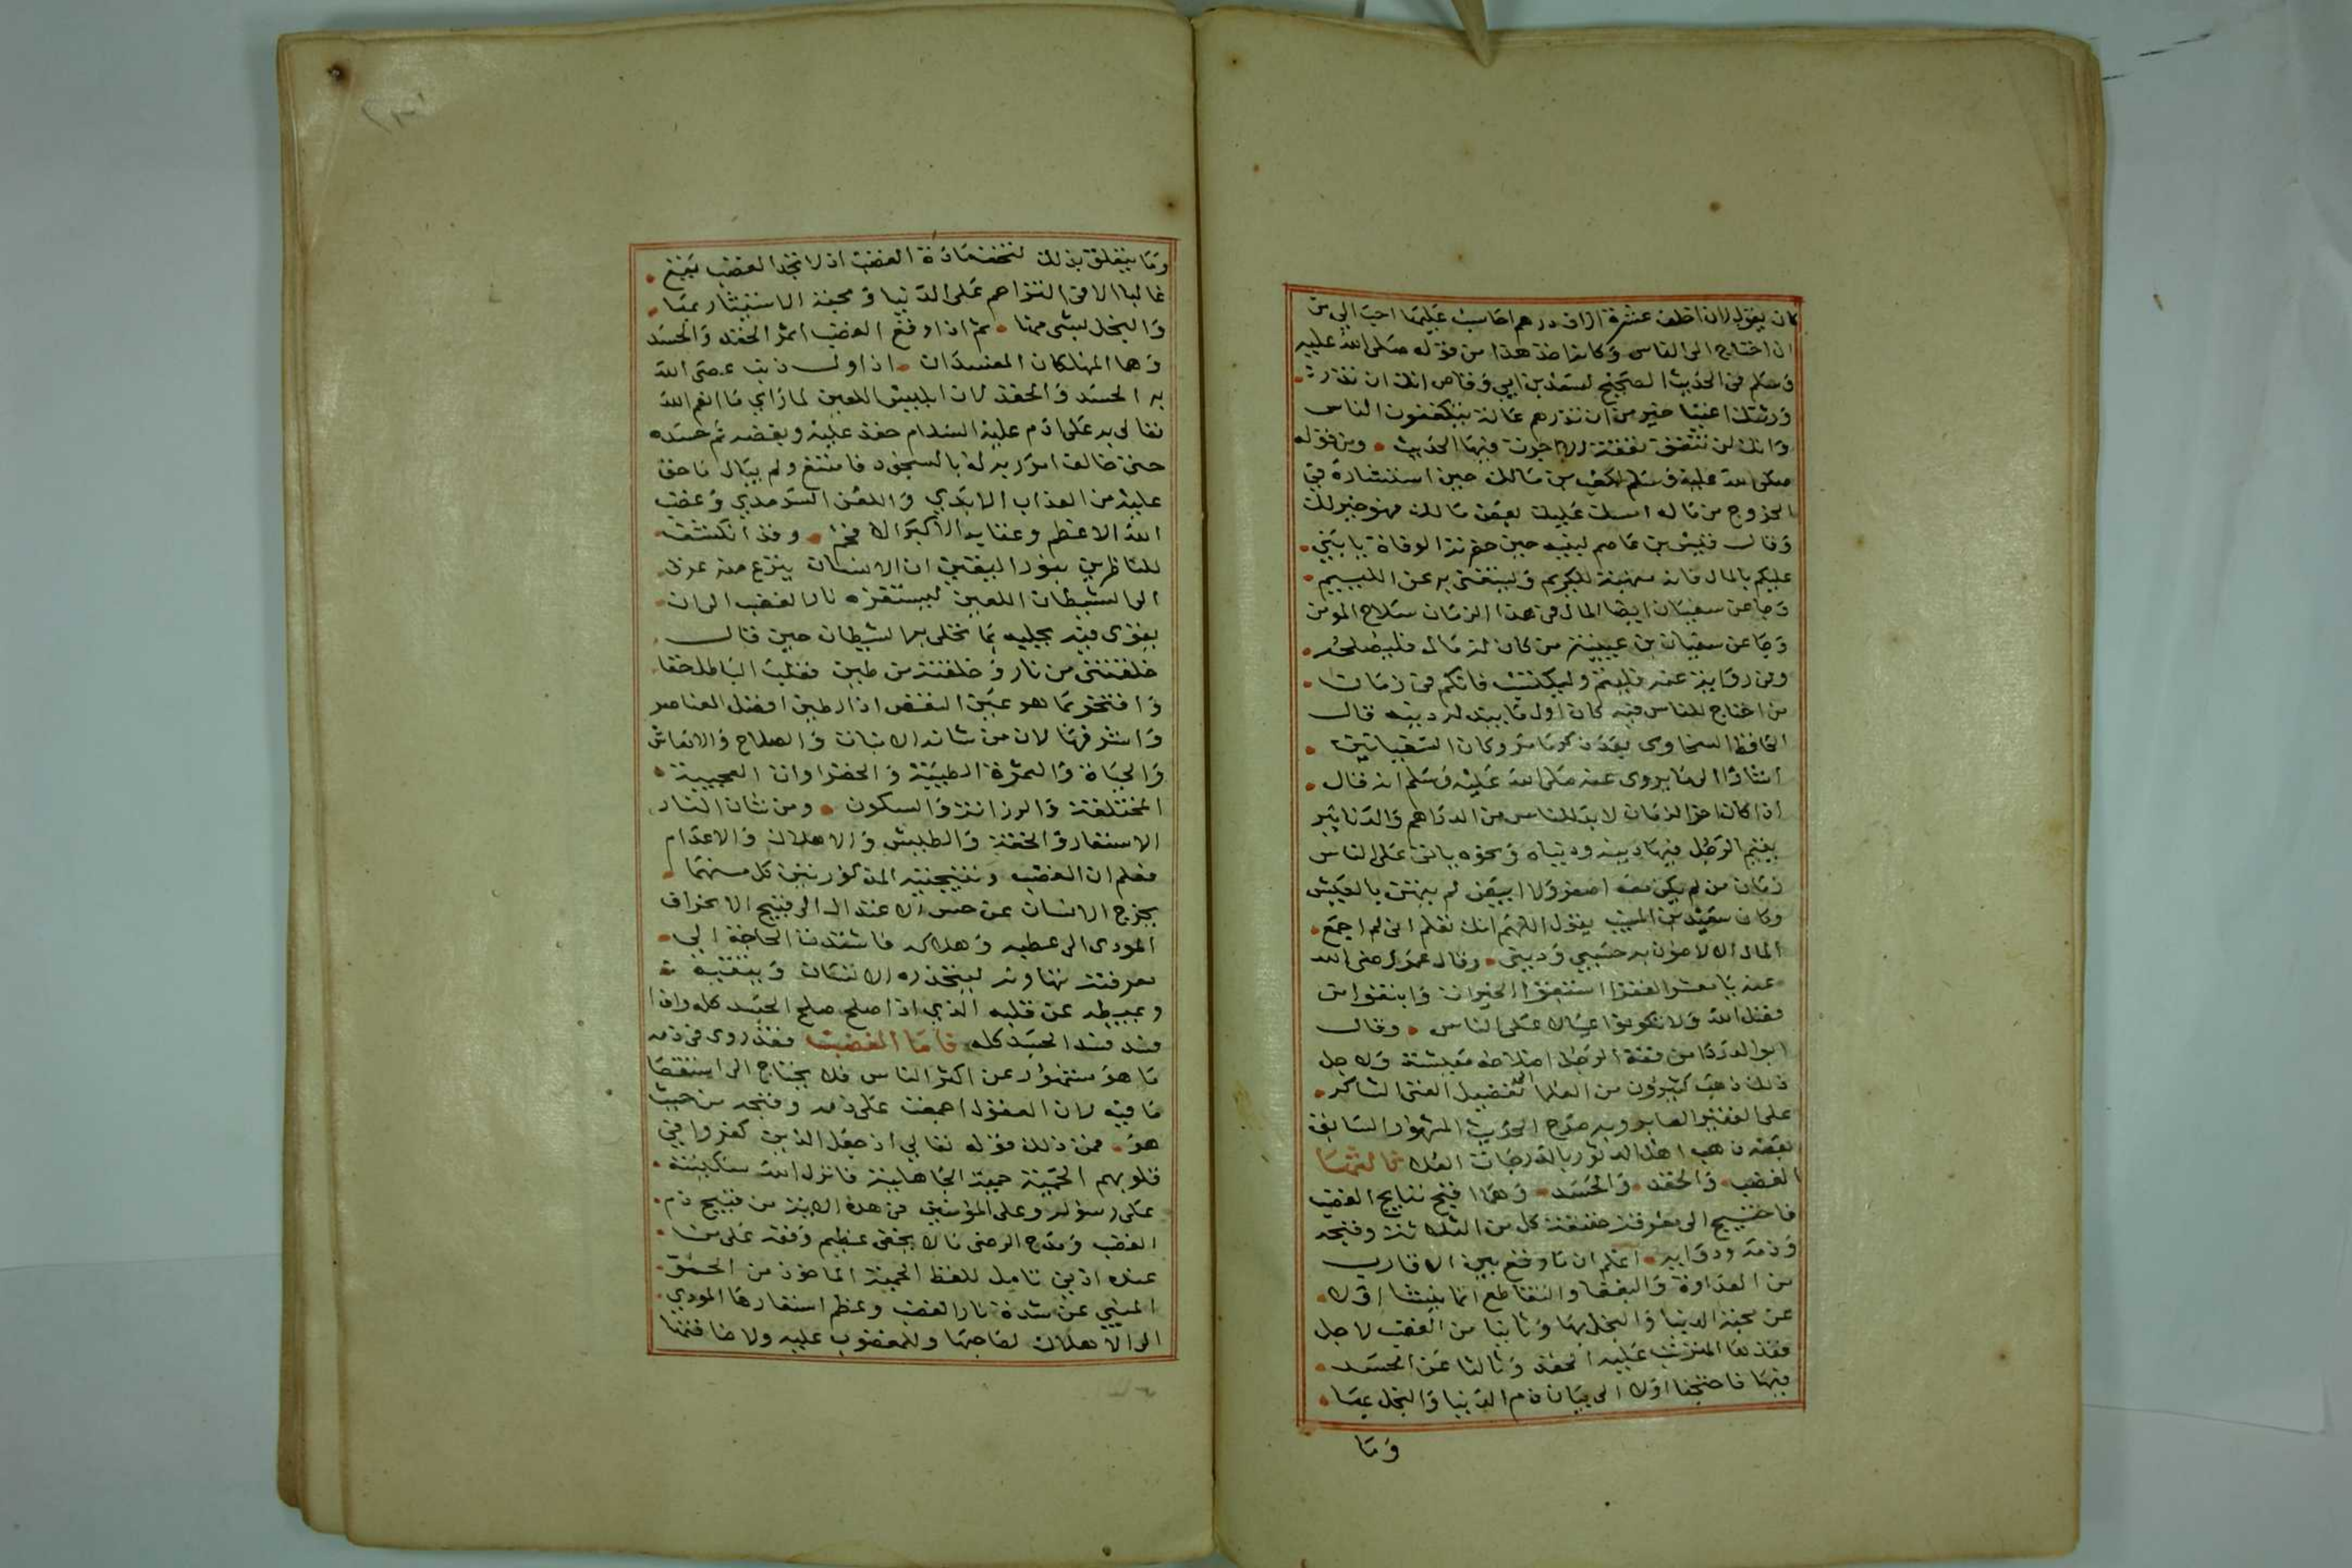 كان يقول لان اخلف عشرة الاف درهم احاسب عليها احب الي من
ان احتاج الى الناس وكانه اخذ هذا من قوله صلى الله عليه
وسلم في الحديث الصحيح لسعد بن ابي وقاص انك ان تذر
ورثتك اغنيا خير من ان تذرهم عالة يتكففون الناس
وانك لن تنفق نفقة الا اجرت فيها الحديث ومن قوله
صلى الله عليه وسلم لكعب بن مالك حين استشاره في
الخروج من ماله امسك عليك بعض مالك فهو خير لك
وقال قيس بن عاصم لبنيه حين حضرته الوفاة يا بني
عليكم بالمال فانه منبهة للكريم ويستغنى به عن اللييم
وجا عن سفيان ايضا المال في هذا الزمان سلاح المومن
وجا عن سفيان بن عيينة من كان له مال فليصلحه
وفي رواية عنه فلينم وليكتسب فانكم في زمان
من احتاج للناس فيه كان اول ما يبذله دينه قال
الحافظ السخاوي بعد ذكره ما مر وكان السفيانين
اشارا الى ما يروى عنه صلى الله عليه وسلم انه قال
اذا كان اخر الزمان لا بد للناس من الدراهم والدنانير
يقيم الرجل فيها دينه ودنياه ونحوه ياتي على الناس
زمان من لم يكن معه اصفر ولا ابيض لم يتهن بالعيش
وكان سعيد بن المسيب يقول اللهم انك تعلم اني لم اجمع
المال الا لاصون به حسبي وديني وقال عمر رضي الله
عنه يا معشر الفقرا استبقوا الخيرات وابتغوا من
فضل الله ولا تكونوا عيالا على الناس وقال
ابو الدردا من فقه الرجل اصلاحه معيشته ولاجل
ذلك ذهب كثيرون من العلما الى تفضيل الغني الشاكر
على الفقير الصابر وبه صرح الحديث المشهور السابق
بعضه ذهب اهل الدثور بالدرجات العلا ثالثها
الغضب والحقد والحسد وهما اقبح نتايج الغضب
فاحتيج الى معرفة حقيقة كل من الثلاثة وقبحه
وذمه ودوايه اعلم ان ما وقع بين الاقارب
من العداوة والبغضا والتقاطع انما ينشا اولا
عن محبة الدنيا والبخل بها وثانيا من الغضب لاجل
فقدها المترتب عليه الحقد وثالثا عن الحسد
فيها فاحتجنا اولا الى بيان ذم الدنيا والبخل بها
وما
وما يتعلق بذلك لتخف مادة الغضب اذ لا تجد الغضب يقع
غالبا الا من التزاحم على الدنيا ومحبة الاستيثار بها
والبخل بشي منها ثم اذا وقع الغضب اثمر الحقد والحسد
وهما المهلكان المفسدان اذ اول ذنب عصي الله
به الحسد والحقد لان ابليس اللعين لما راي ما انعم الله
تعالى به على ادم عليه السلام حقد عليه وبغضه ثم حسده
حتى خالف امر ربه له بالسجود فامتنع ولم يبال ما حق
عليه من العذاب الابدي واللعن السرمدي وغضب
الله الاعظم وعقابه الاكبر الافخم وقد انكشف
للناظرين بنور اليقين ان الانسان ينزع منه عرق
الى الشيطان اللعين ليستفزه نار الغضب الى ان
يقوى فيه بجليه بما تحلى به الشيطان حين قال
خلقتني من نار وخلقته من طين فقلب الباطل حقا
وافتخر بما هو عين النقص اذ الطين افضل العناصر
واشرفها لان من شانه الانبات والصلاح والانعاش
والحياة والثمرة الطيبة والخضراوات العجيبة
المختلفة والرزانة والسكون ومن شان النار
الاستعار والخفة والطيش والاهلاك والاعدام
فعلم ان الغضب ونتيجتيه المذكورتين كل منهما
يخرج الانسان عن حيز الاعتدال الى قبيح الانحراف
المودي الى عطبه وهلاكه فاشتدت الحاجة الى
معرفة نهاونه ليتحذره الانسان ويتقيه
ويميطه عن قلبه الذي اذا صلح صلح الجسد كله واذا
فسد فسد الجسد كله فاما الغضب فقد روى في ذمه
ما هو مشهور عن اكثر الناس فلا يحتاج الى استقصا
ما فيه لان العقول اجمعت على ذمه وقبحه من حيث
هو فمن ذلك قوله تعالى اذ جعل الذين كفروا في
قلوبهم الحمية حمية الجاهلية فانزل الله سكينته
على رسوله وعلى المؤمنين في هذه الاية من قبيح ذم
الغضب ومدح الرضى ما لا يخفى عظيم وقعه على من
عنده ادنى تامل للفظ الحمية الماخوذ من الحمق
المنبي عن شدة نار الغضب وعظم استعارها المودي
الى الاهلاك لصاحبها وللمغضوب عليه ولاضافتها